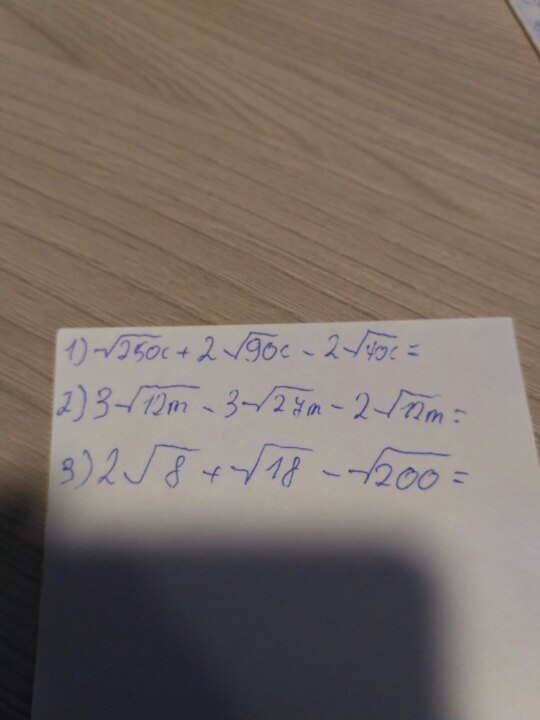 1) √250c + 2√90c - 2√40c =
2) 3√12m - 3√27m - 2√12m =
3) 2√8 + √18 - √200 =